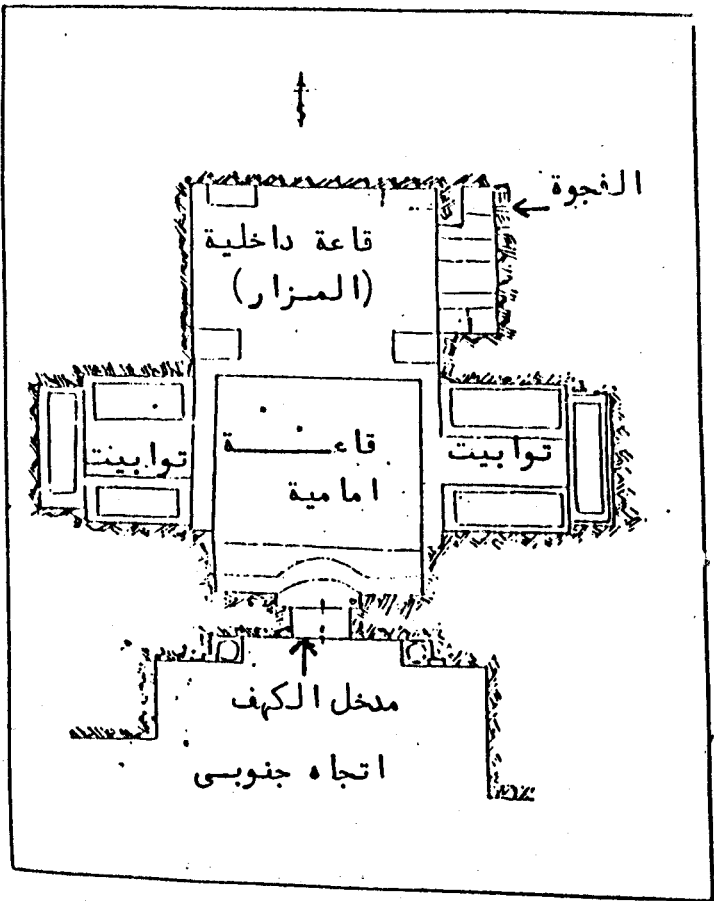 الفجوة
قاعة داخلية
(المزار)
توابيت
قاعة
امامية
توابيت
مدخل الكهف
اتجاه جنوبى